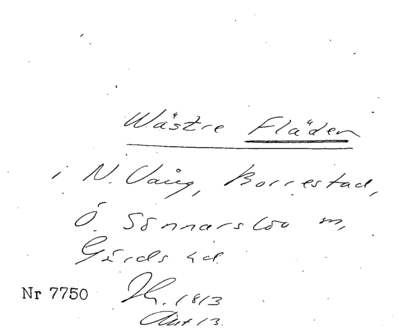 Wästre Fläden
i N. Vång, Borrestad,
Ö. Sönnarslöv m,
Gärds hd
Nr 7750
1813